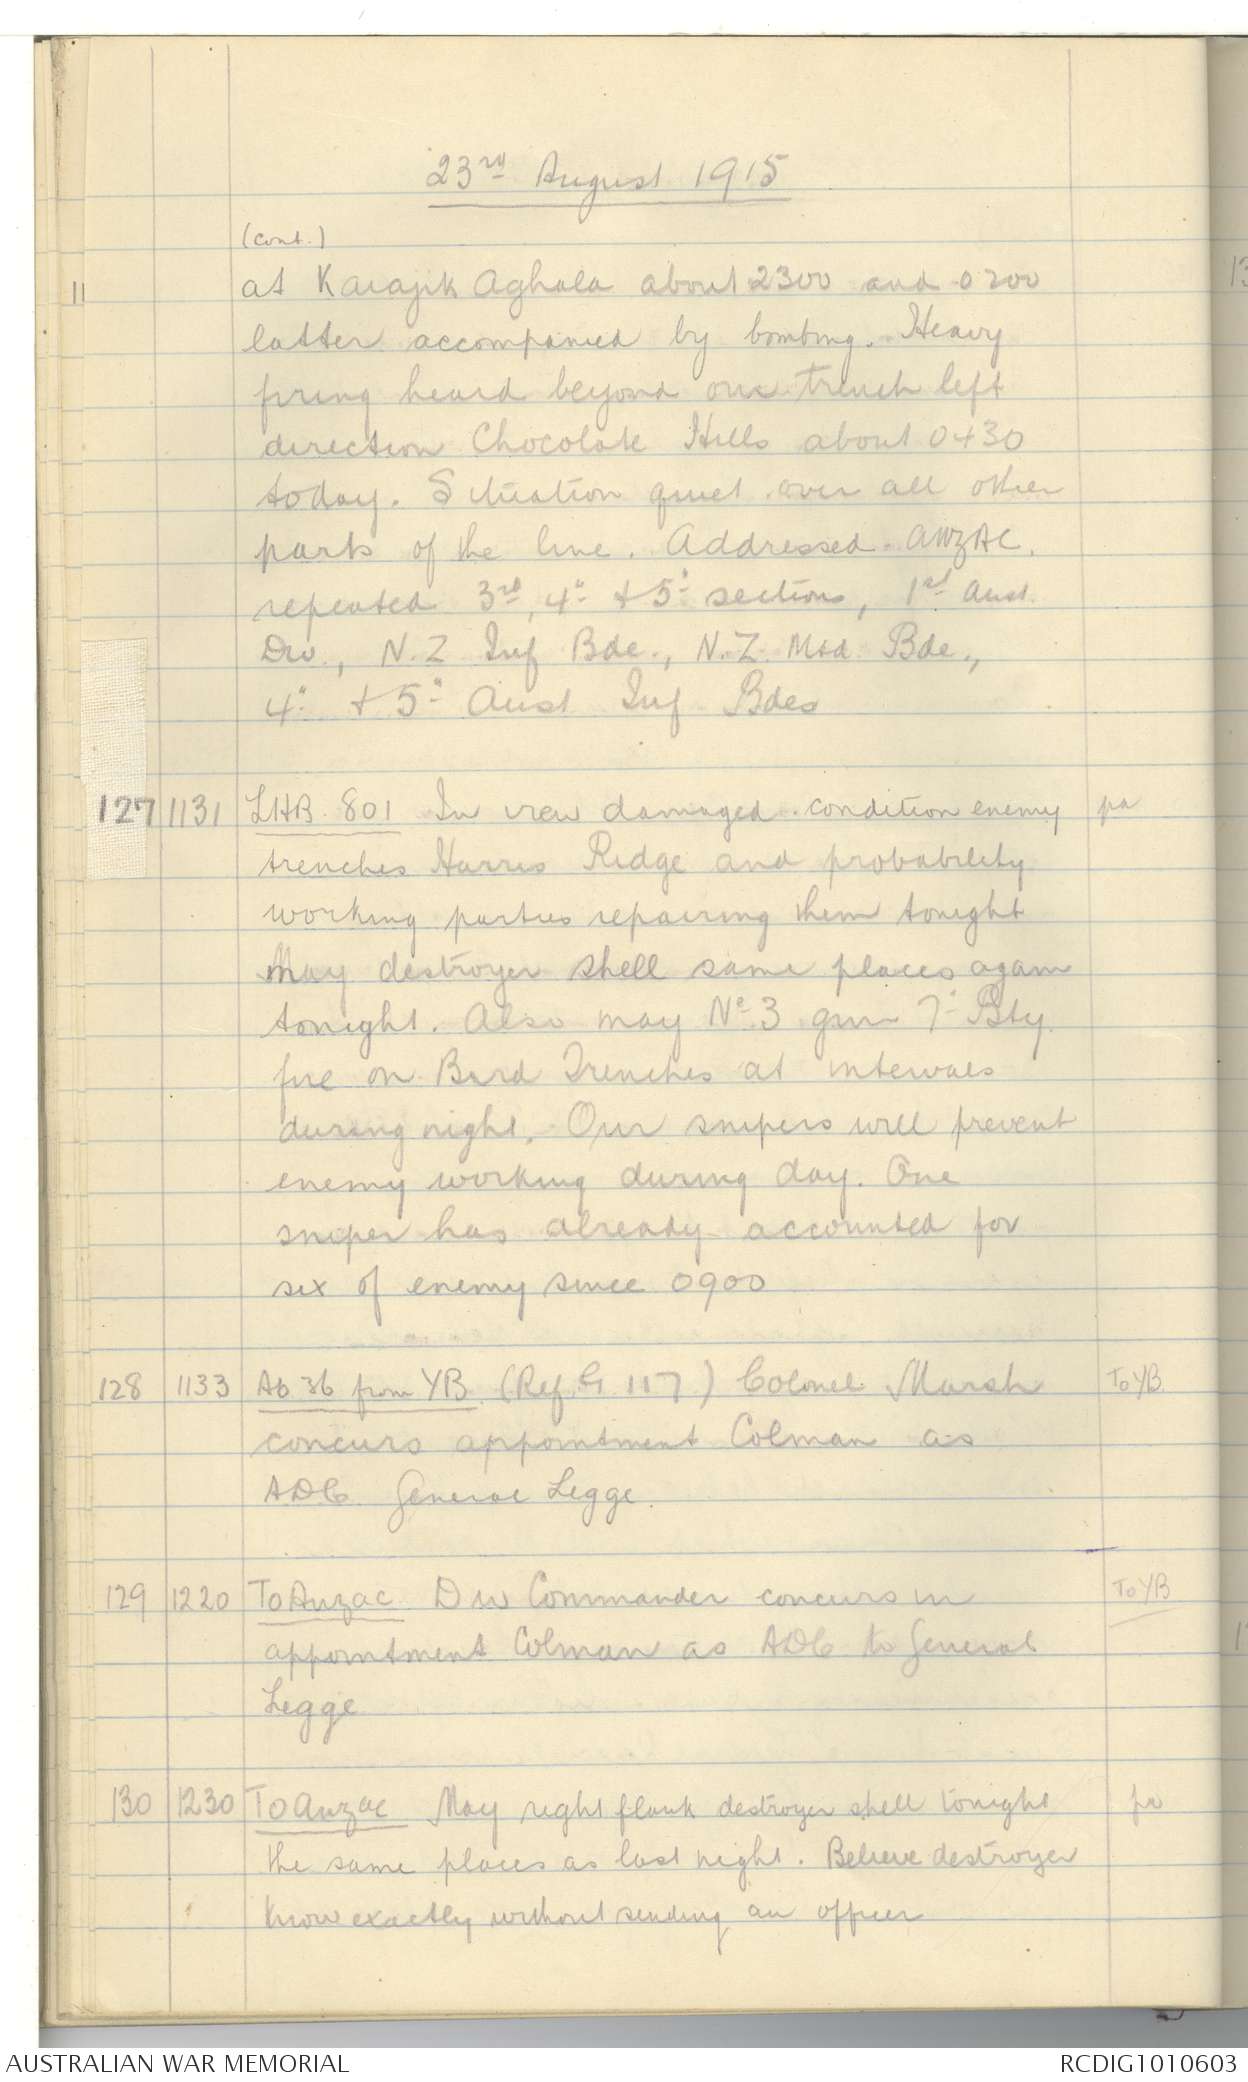 23rd August 1915
(cont.)
at Karajik Aghala about 2300 and 0200
latter accompanied by bombing. Heavy
firing heard beyond our trench left
direction Chocolate Hills about 0430
today. Situation quiet over all other
parts of the line. Addressed ANZAC.
repeated 3rd, 4" & 5" sections, 1st Aust
Div., N.Z Inf Bde., N.Z. Mtd Bde.,
4" & 5" Aust Inf Bdes
127 1131 LHB 801 In view damaged condition enemy pa
trenches Harris Ridge and probability
working parties repairing them tonight
May destroyer shell same places again
tonight. Also may No 3 gun 7" Bty.
fire on Bird Trenches at intervals
during night. Our snipers will prevent
enemy working during day. One
sniper has already accounted for
six of enemy since 0900
128 1133 Ab 36 from YB (Ref. G 117) Colonel Marsh To YB.
concurs appointment Colman as
ADC General Legge.
129 1220 To Anzac Div Commander concurs in To YB
appointment Colman as ADC to General
Legge
130 1230 To Anzac May right flank destroyer shell tonight pa
the same places as last night. Believe destroyer
know exactly without sending an officer
AUSTRALIAN WAR MEMORIAL
RCDIG1010603